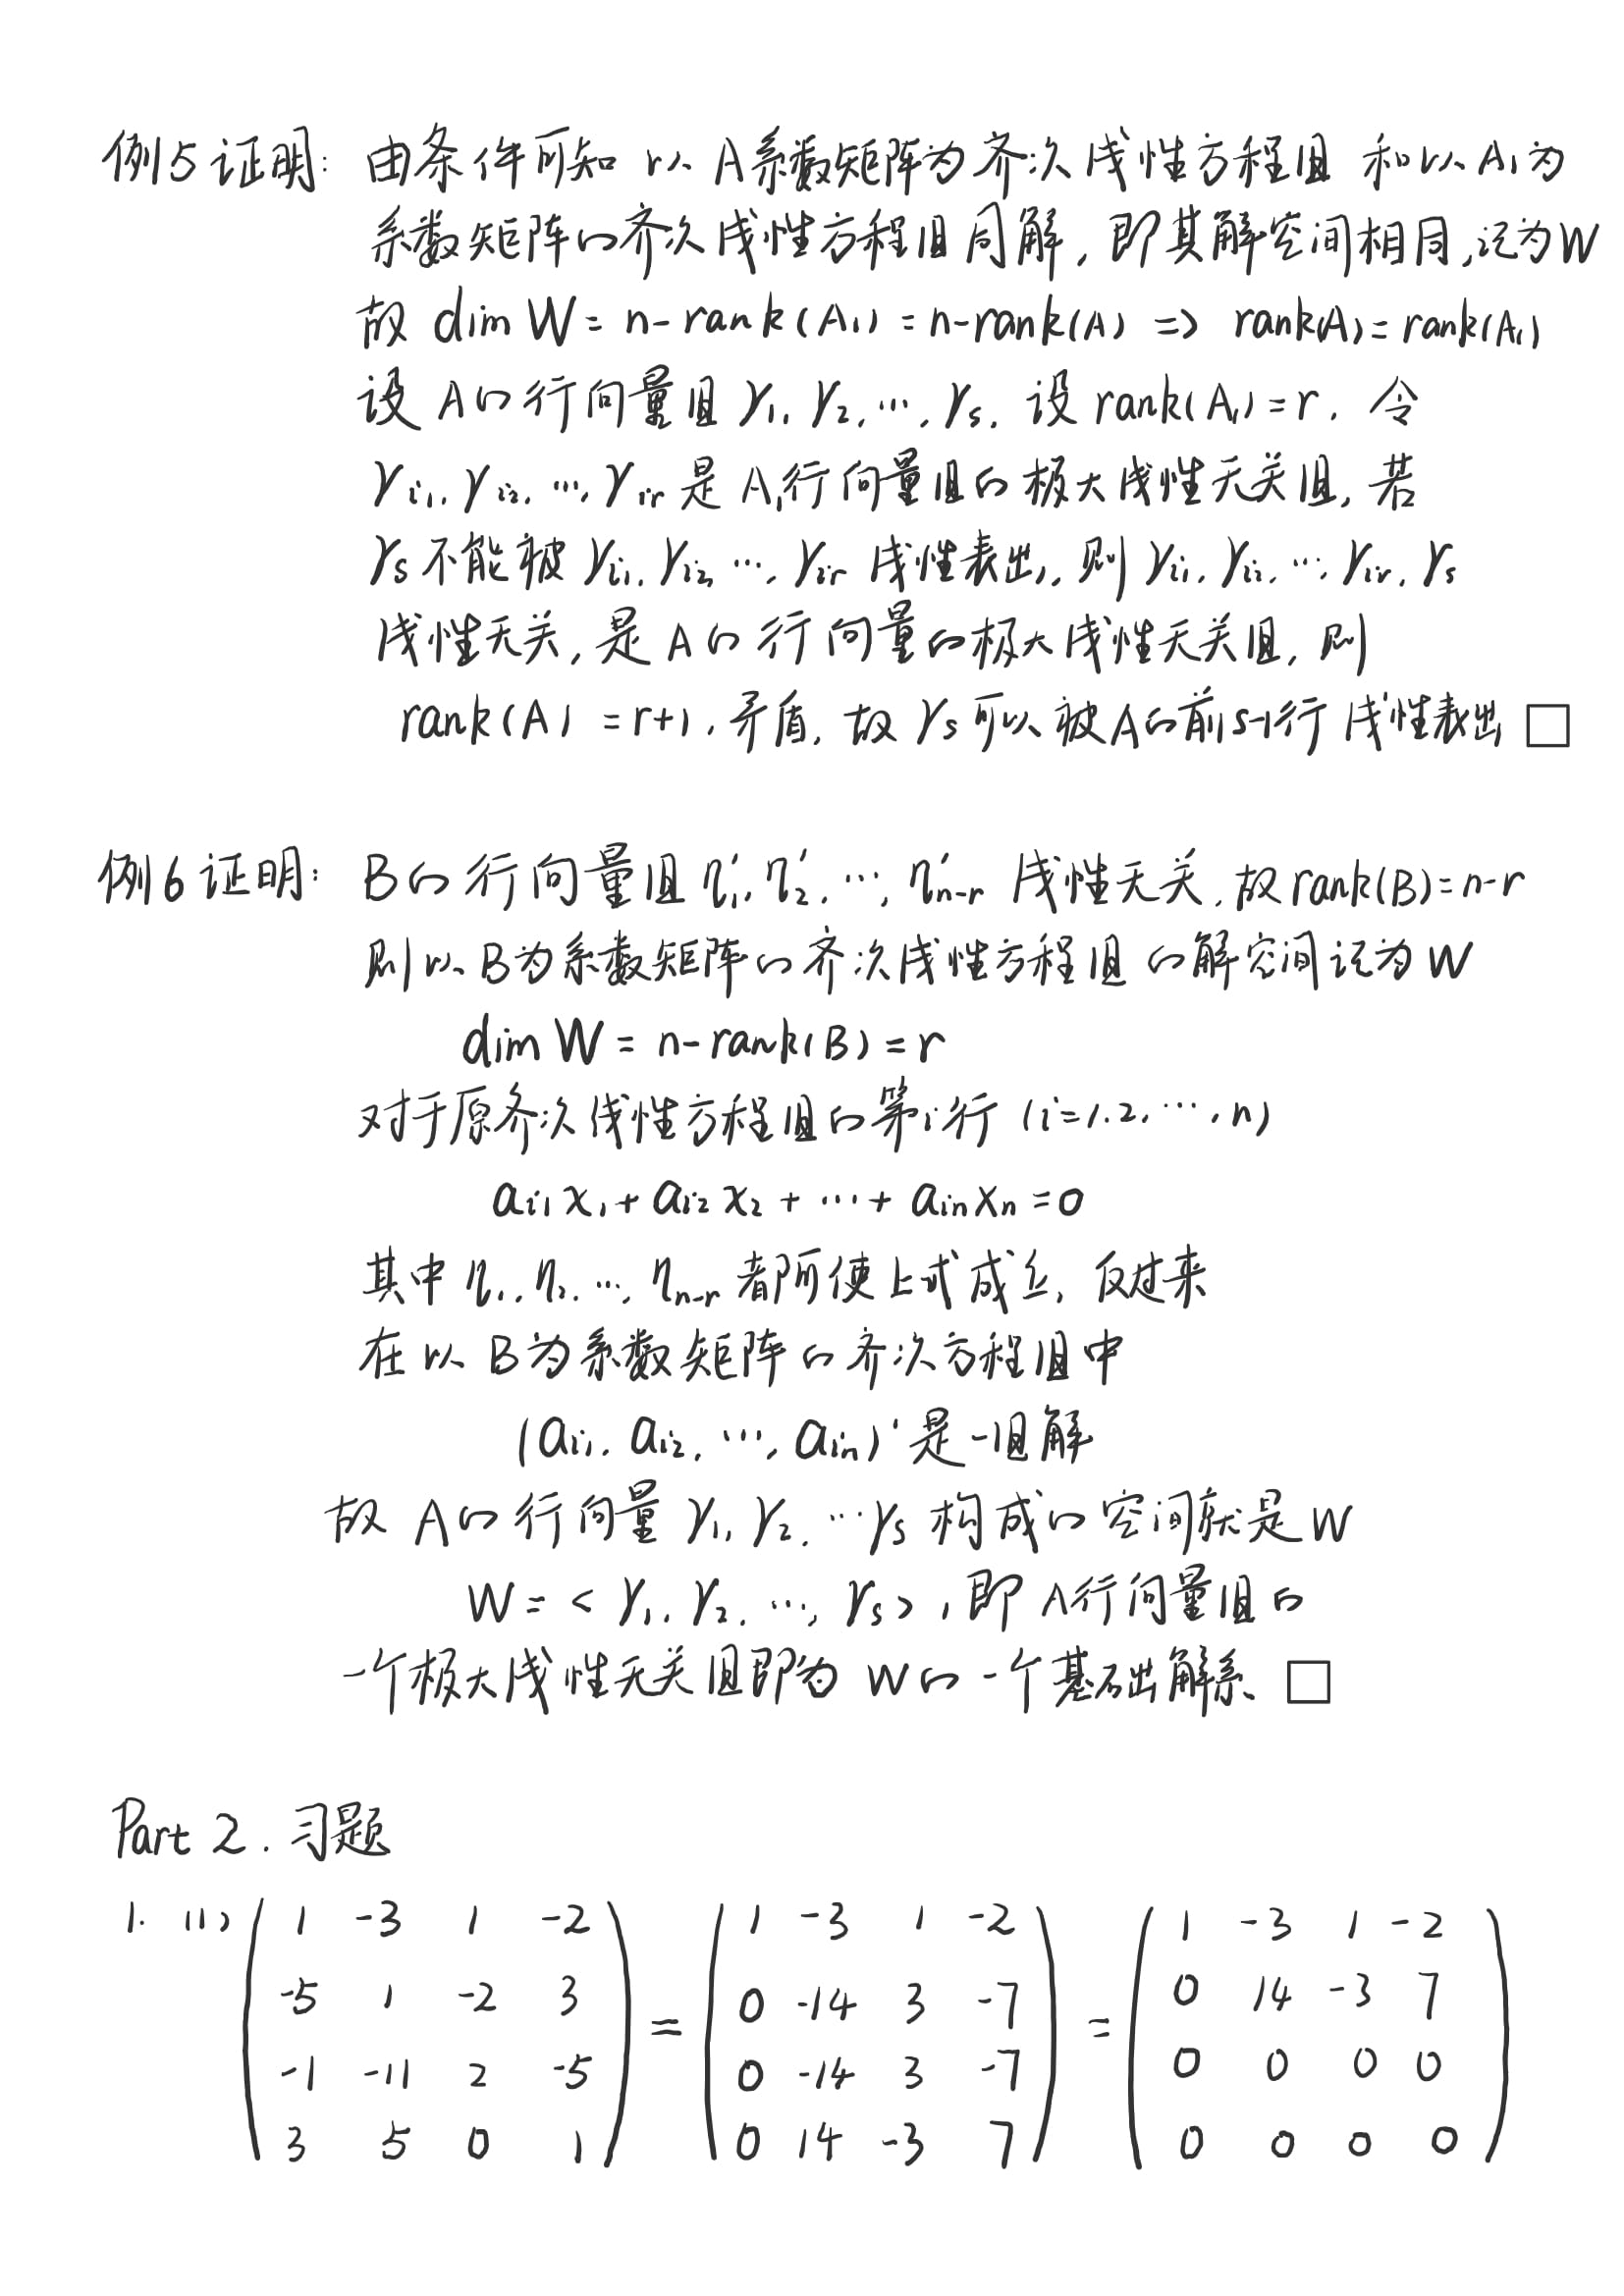 例5 证明: 由条件可知 以 A系数矩阵为齐次线性方程组 和以A₁为
系数矩阵的齐次线性方程组同解, 即其解空间相同,记为W
故 dim W = n-rank(A₁) = n-rank(A) => rank(A)=rank(A₁)
设 A的行向量组 γ₁, γ₂, ⋯, γₛ, 设 rank(A₁)=r, 令
γᵢ₁, γᵢ₂, ⋯, γᵢᵣ 是 A₁行向量组的极大线性无关组, 若
γₛ 不能被 γᵢ₁, γᵢ₂, ⋯, γᵢᵣ 线性表出, 则 γᵢ₁, γᵢ₂, ⋯, γᵢᵣ, γₛ
线性无关, 是A的行向量的极大线性无关组, 则
rank(A) = r+1, 矛盾, 故 γₛ可以被A的前s-1行 线性表出 □
例6 证明: B的行向量组 η₁', η₂', ⋯, η'n-r 线性无关, 故rank(B)=n-r
则以B为系数矩阵的齐次线性方程组的解空间记为W
dim W = n-rank(B) = r
对于原齐次线性方程组的第i行 (i=1.2, ⋯, n)
aᵢ₁x₁+aᵢ₂x₂+⋯+aᵢₙxₙ=0
其中 η₁, η₂, ⋯, ηn-r 都所使上式成立, 反过来
在以B为系数矩阵的齐次方程组中
(aᵢ₁, aᵢ₂, ⋯, aᵢₙ)' 是一组解
故 A的行向量 γ₁, γ₂, ⋯γₛ 构成的空间就是W
W = < γ₁, γ₂, ⋯, γₛ>, 即 A行向量组的
一个极大线性无关组即为 W的一个基础解系 □
Part 2. 习题
1. (1) ( 1 -3 1 -2 ) ( 1 -3 1 -2 ) ( 1 -3 1 -2 )
-5 1 -2 3 = 0 -14 3 -7 = 0 14 -3 7
-1 -11 2 -5 0 -14 3 -7 0 0 0 0
3 5 0 1 0 14 -3 7 0 0 0 0